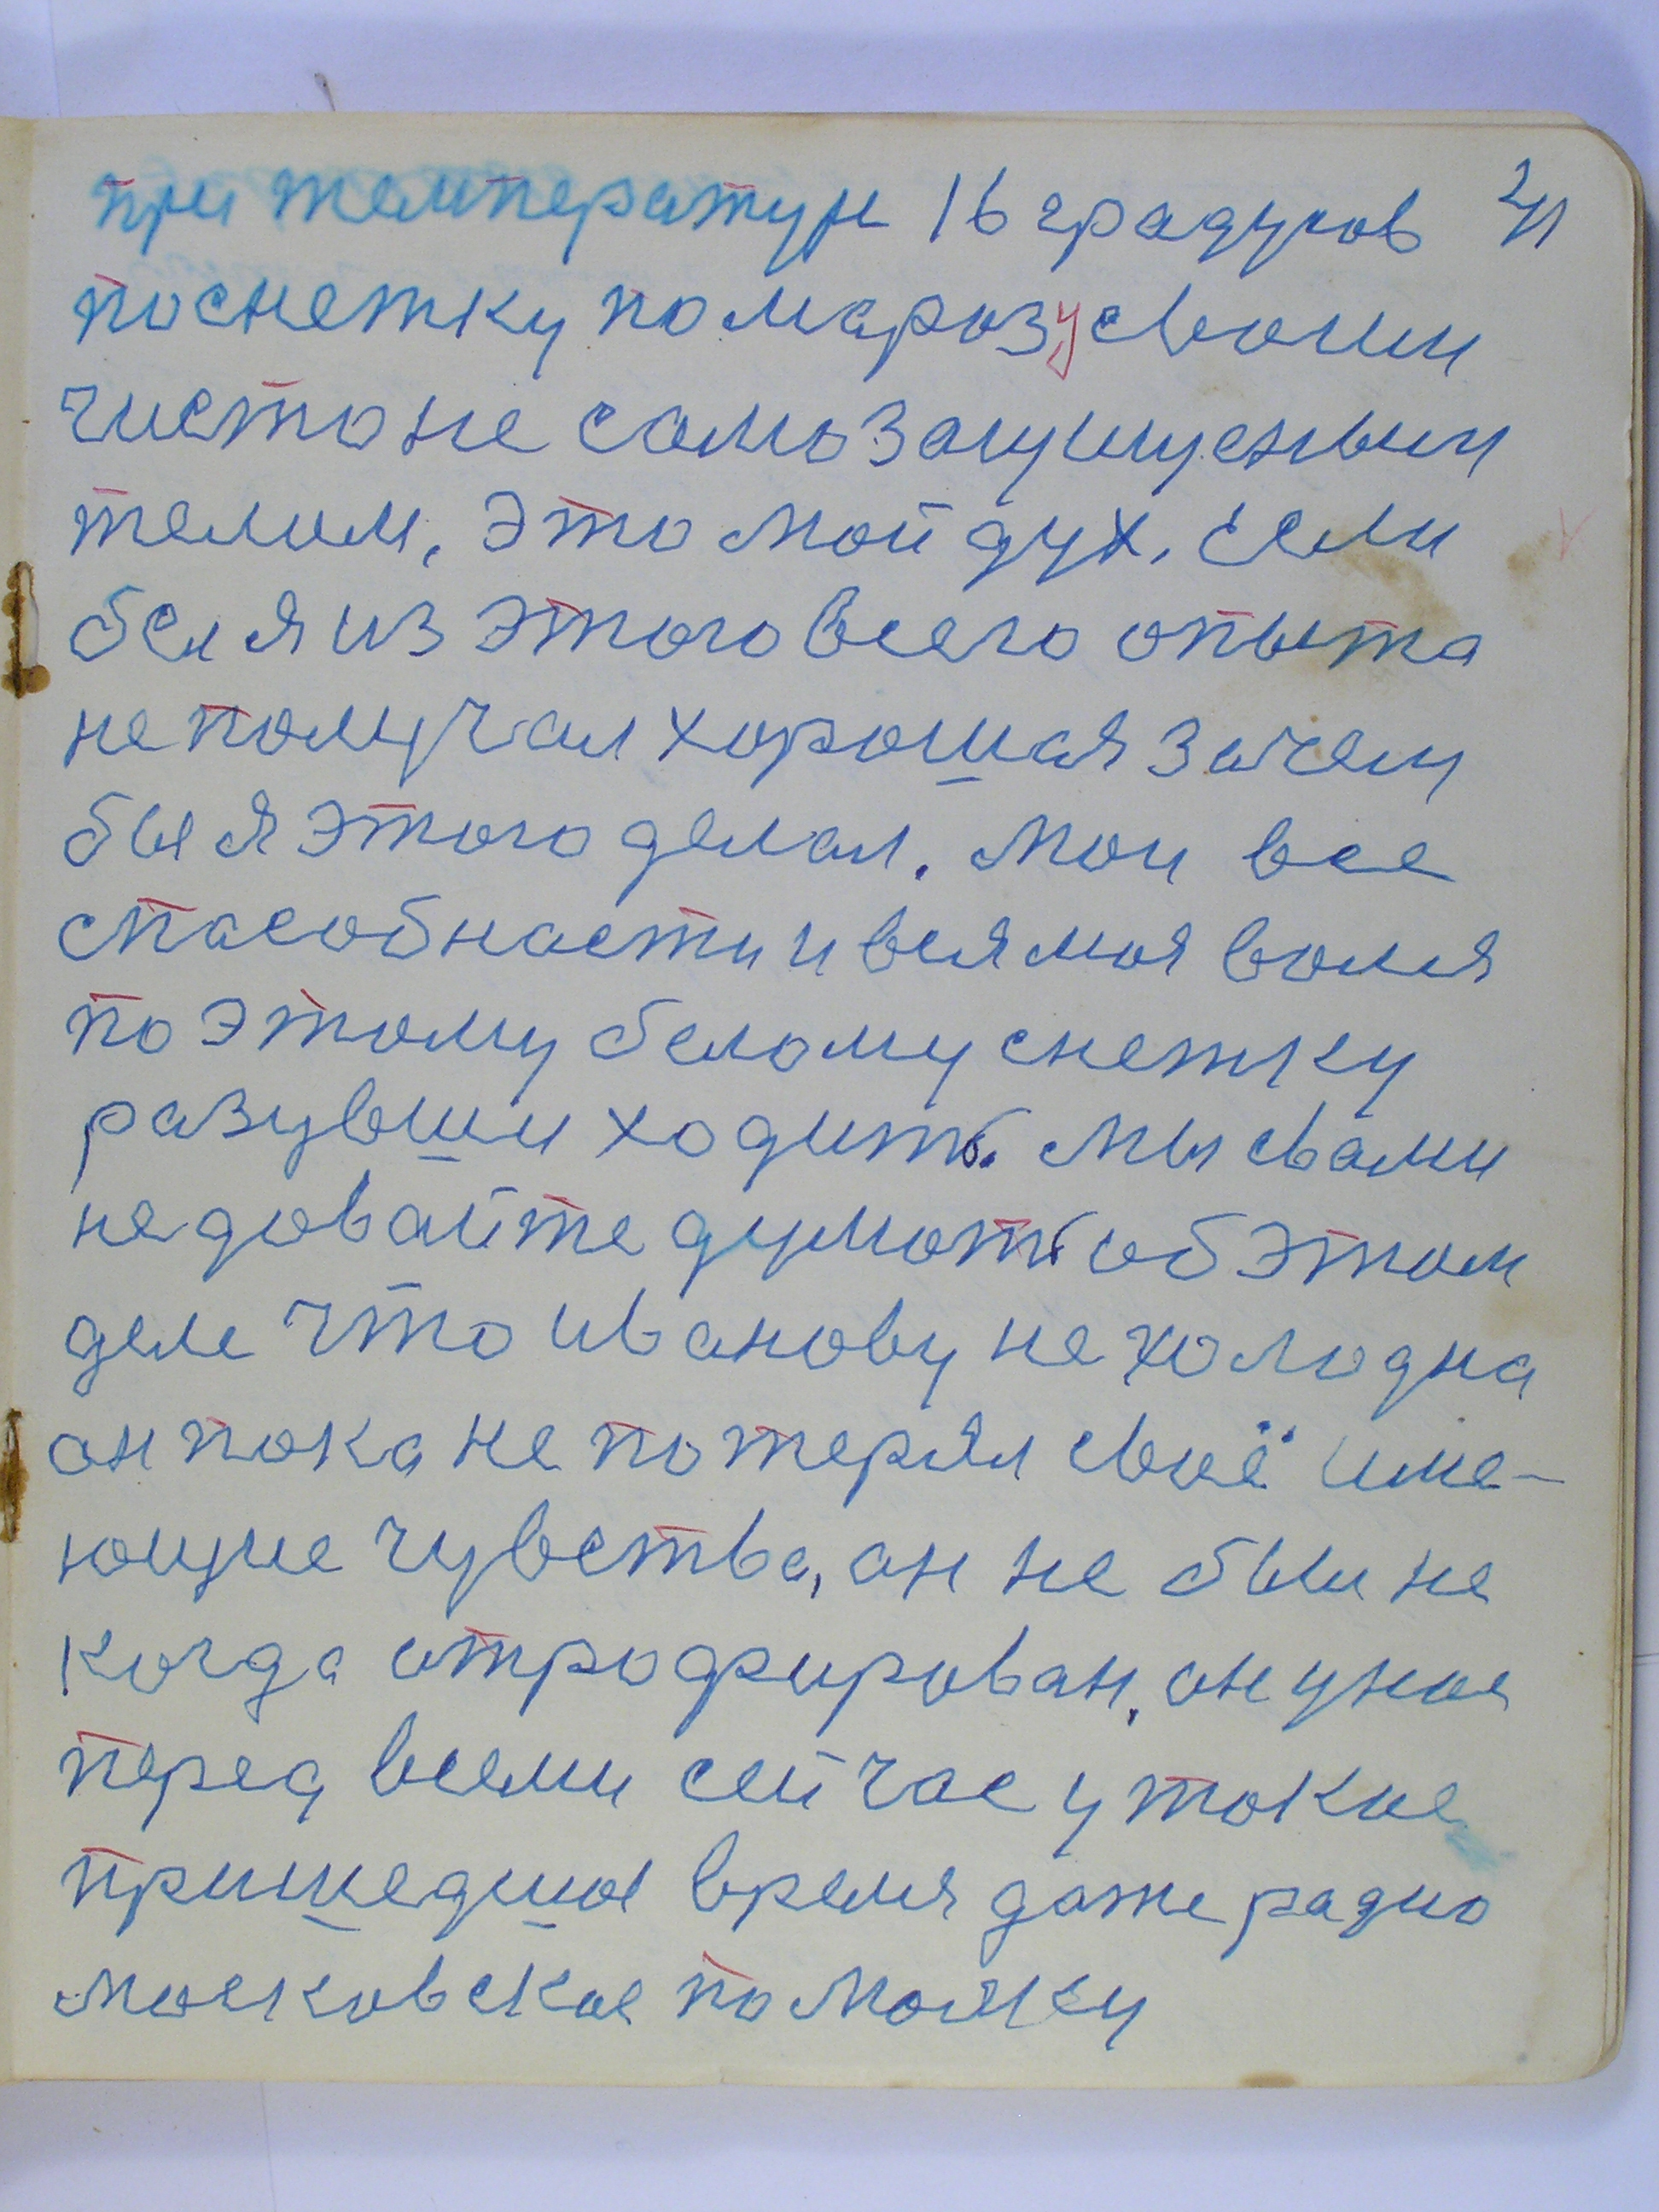 при температури 16 градусов
поснежку по марозу своим
чисто не самозащищеным
телом. Это мой дух. Если
бы я из этого всего опыта
не получал хорошая зачем
бы я этого делал. Мои все
спасобнасти и вся моя воля
по этому белому снежку
разувши ходить. Мы с вами
не довайте думоть об этом
деле что иванову не холодна
он пока не потерял своё име-
ющие чувства, он не был не
когда отрофирован. он
перед всеми сейчас у токие
пришедшия время даже радио
московское по Маяку